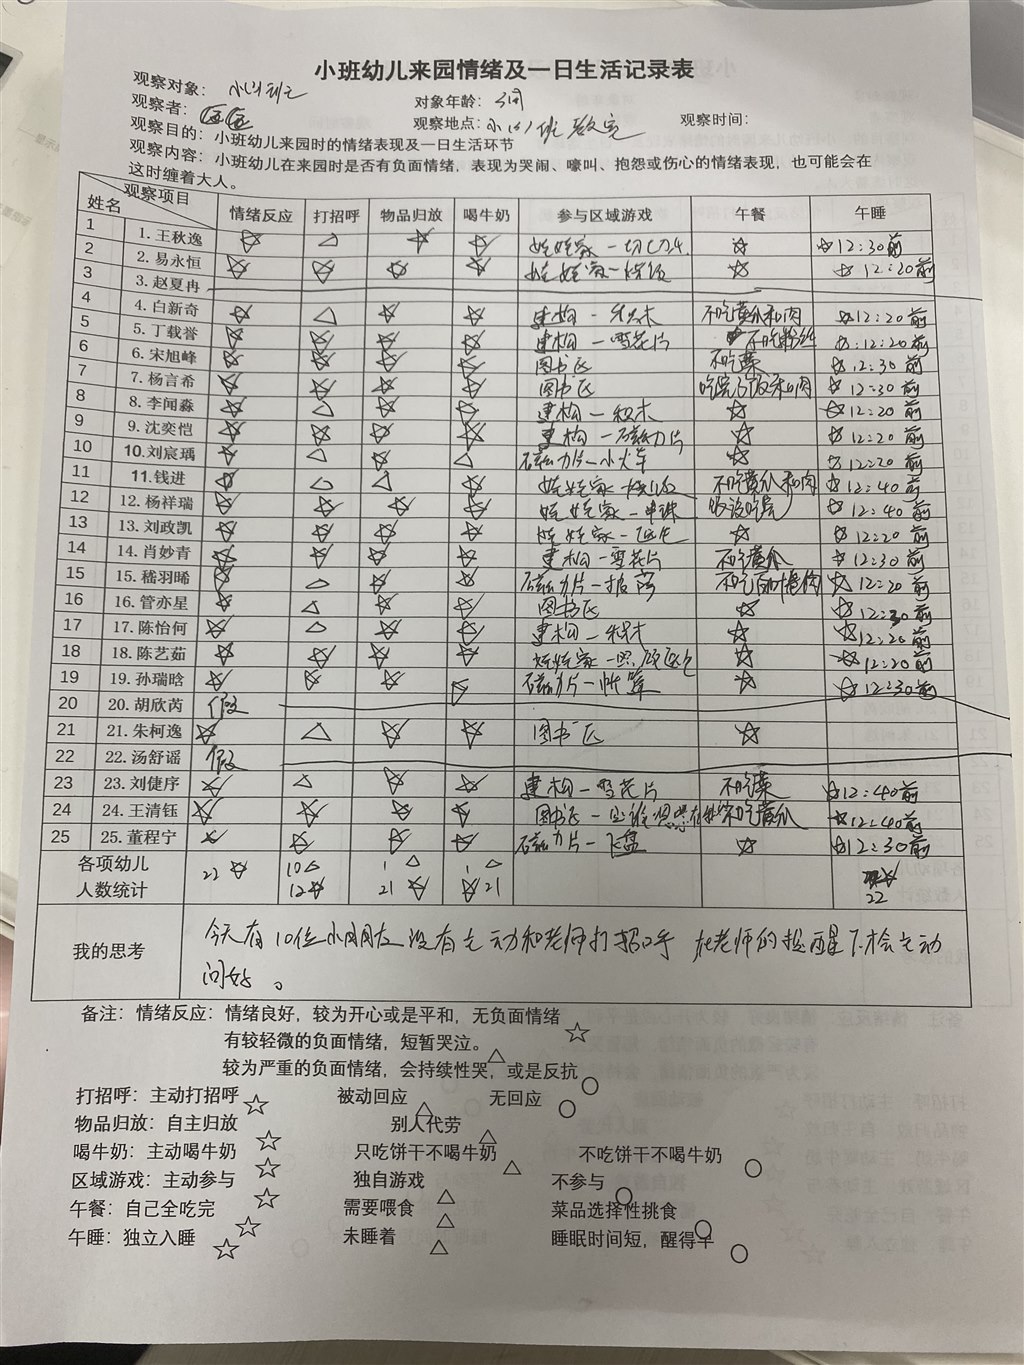 小班幼儿来园情绪及一日生活记录表
观察对象：
观察者： 对象年龄：3周
观察目的：小班幼儿来园时的情绪表现及一日生活环节 观察地点：小(1)班教室 观察时间：
观察内容：小班幼儿在来园时是否有负面情绪，表现为哭闹、嚎叫、抱怨或伤心的情绪表现，也可能会在
这时缠着大人。
姓名 观察项目 情绪反应 打招呼 物品归放 喝牛奶 参与区域游戏 午餐 午睡
1 1. 王秋逸 ☆ △ ☆ ☆ 娃娃家－切切 ☆ ☆12:30前
2 2. 易永恒 ☆ ☆ ☆ ☆ 娃娃家－烧饭 ☆ ☆12:20前
3 3. 赵夏冉
4 4. 白新奇 ☆ △ ☆ ☆ 建构－积木 不吃黄瓜和肉 ☆12:20前
5 5. 丁载誉 ☆ ☆ ☆ ☆ 建构－雪花片 不吃粉丝 ☆12:20前
6 6. 宋旭峰 ☆ ☆ ☆ ☆ 图书区 不吃菜 ☆12:30前
7 7. 杨言希 ☆ ☆ ☆ ☆ 图书区 吃完了饭和肉 ☆12:30前
8 8. 李闻淼 ☆ △ ☆ ☆ 建构－积木 ☆ ☆12:20前
9 9. 沈奕恺 ☆ ☆ ☆ ☆ 建构－磁力片 ☆ ☆12:20前
10 10. 刘宸瑀 ☆ △ ☆ △ 磁力片－小火车 ☆ ☆12:20前
11 11. 钱进 ☆ △ △ ☆ 娃娃家－烧饭 不吃黄瓜和肉 ☆12:40前
12 12. 杨祥瑞 ☆ ☆ ☆ ☆ 娃娃家－串珠 饭没吃完 ☆12:40前
13 13. 刘政凯 ☆ ☆ ☆ ☆ 娃娃家－ ☆ ☆12:20前
14 14. 肖妙青 ☆ ☆ ☆ ☆ 建构－雪花片 不吃黄瓜 ☆12:30前
15 15. 嵇羽晞 ☆ △ ☆ ☆ 磁力片－ 不吃 ☆12:20前
16 16. 管亦星 ☆ △ ☆ ☆ 图书区 ☆ ☆12:30前
17 17. 陈怡何 ☆ △ ☆ ☆ 建构－积木 ☆ ☆12:20前
18 18. 陈艺茹 ☆ ☆ ☆ ☆ 娃娃家－照顾 ☆ ☆12:20前
19 19. 孙瑞晗 ☆ ☆ ☆ ☆ 磁力片－帐篷 ☆ ☆12:30前
20 20. 胡欣芮 假
21 21. 朱柯逸 ☆ △ ☆ ☆ 图书区 ☆
22 22. 汤舒谣 假
23 23. 刘倢序 ☆ △ ☆ ☆ 建构－雪花片 不吃菜 ☆12:40前
24 24. 王清钰 ☆ ☆ ☆ ☆ 图书区－ 不吃黄瓜 ☆12:40前
25 25. 董程宁 ☆ ☆ ☆ ☆ 磁力片－飞盘 ☆ ☆12:30前
各项幼儿 22☆ 10△ 1△ 1△
人数统计 12☆ 21☆ ☆21 22
我的思考 今天有10位小朋友没有主动和老师打招呼 在老师的提醒下会主动
问好。
备注：情绪反应：情绪良好，较为开心或是平和，无负面情绪☆
有较轻微的负面情绪，短暂哭泣。△
较为严重的负面情绪，会持续性哭，或是反抗○
打招呼：主动打招呼☆ 被动回应△ 无回应○
物品归放：自主归放☆ 别人代劳△
喝牛奶：主动喝牛奶☆ 只吃饼干不喝牛奶△ 不吃饼干不喝牛奶○
区域游戏：主动参与☆ 独自游戏△ 不参与○
午餐：自己全吃完☆ 需要喂食△ 菜品选择性挑食○
午睡：独立入睡☆ 未睡着△ 睡眠时间短，醒得早○